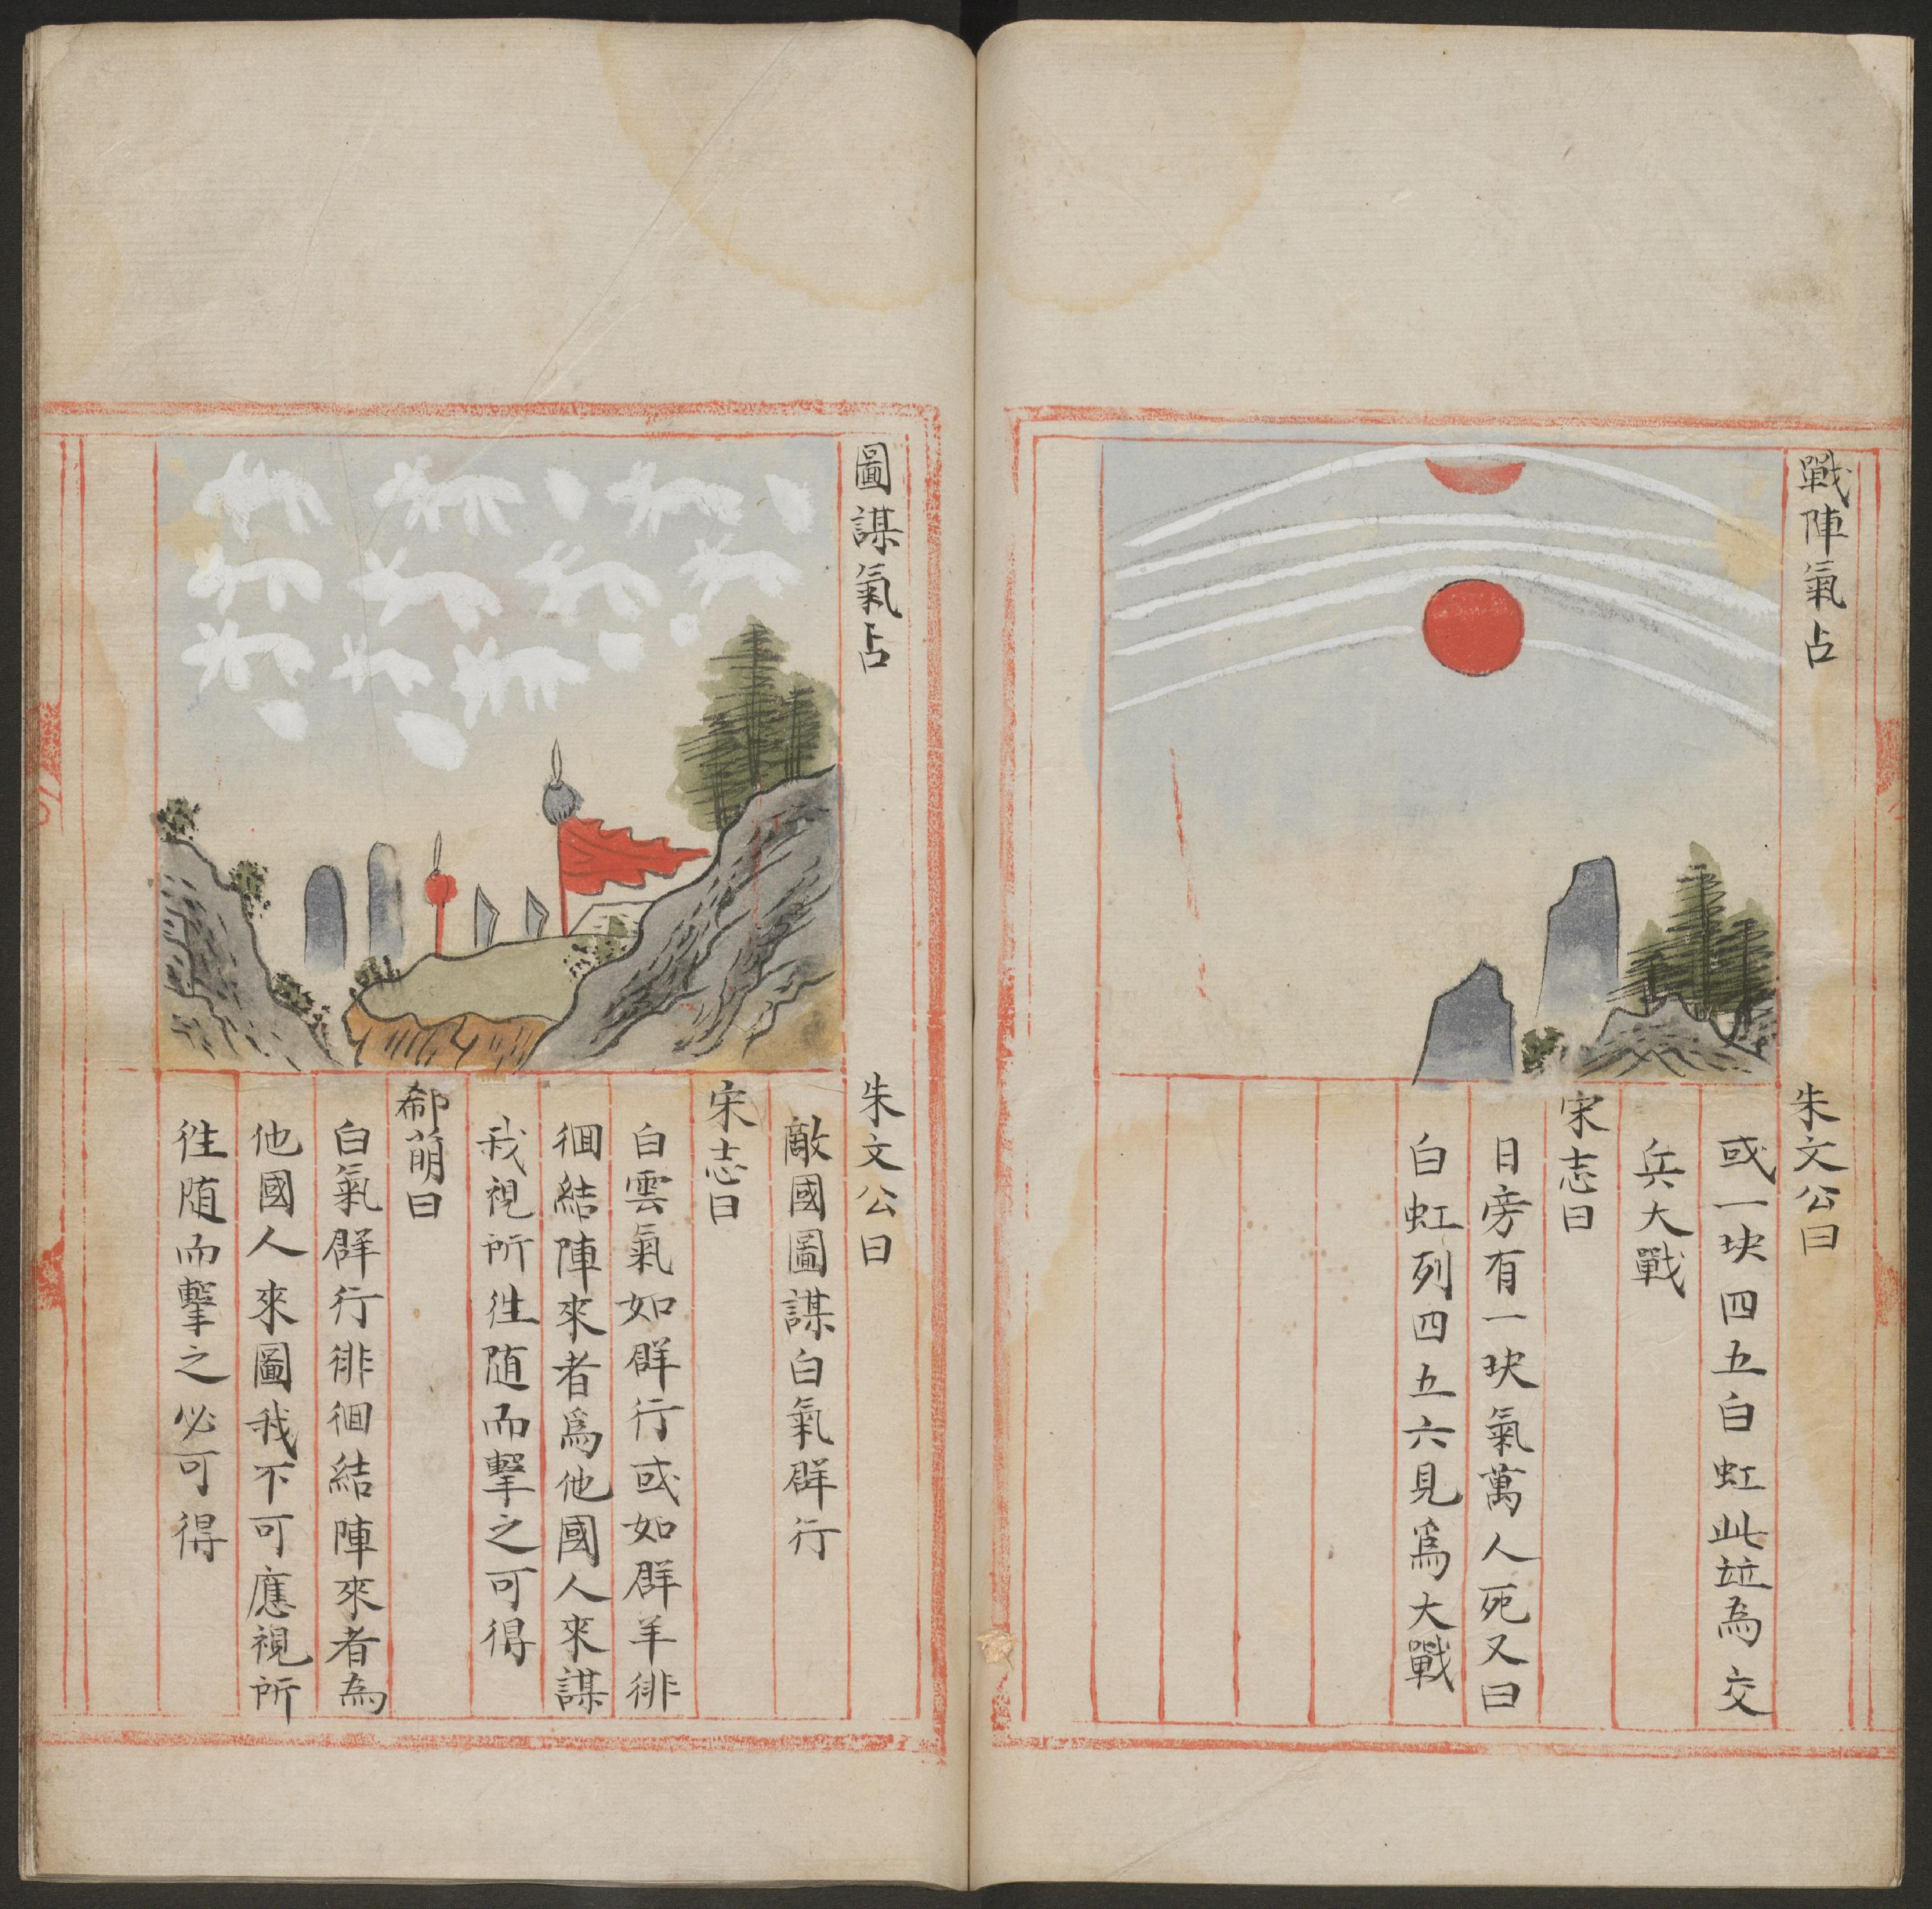 戰陣氣占
朱文公曰
或一块四五白虹此竝為交
兵大戰
宋志曰
日旁有一块氣萬人死又曰
白虹列四五六見爲大戰
圖謀氣占
朱文公曰
敵國圖謀白氣群行
宋志曰
白雲氣如群行或如群羊徘
徊結陣來者爲他國人來謀
我視所往随而擊之可得
郗萌曰
白氣群行徘徊結陣來者為
他國人來圖我不可應視所
往随而擊之必可得